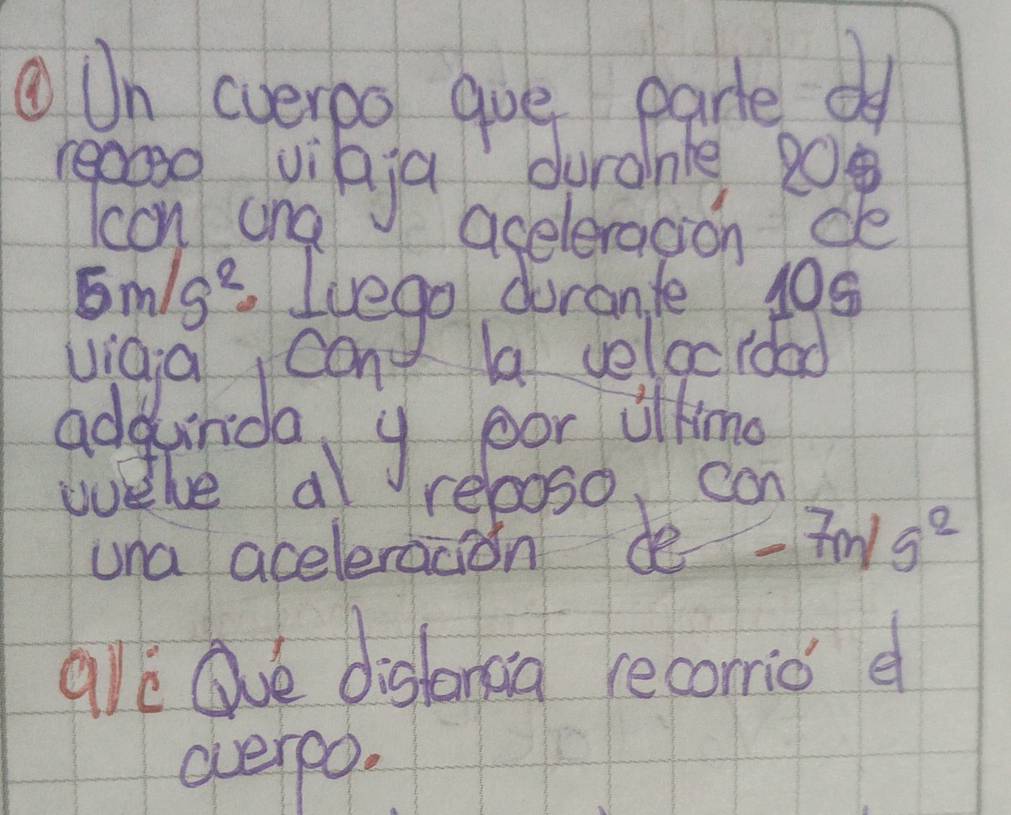 @ Un cuerpo que parte del
reposo viaja durante 20s
con una aceleración de
5m/s². luego durante 10s
viaja, con la velocidad
adquirida, y por último
vuelve al reposo, con
una aceleración de -7m/s²
a) ¿Qué distancia recorrió el
cuerpo.